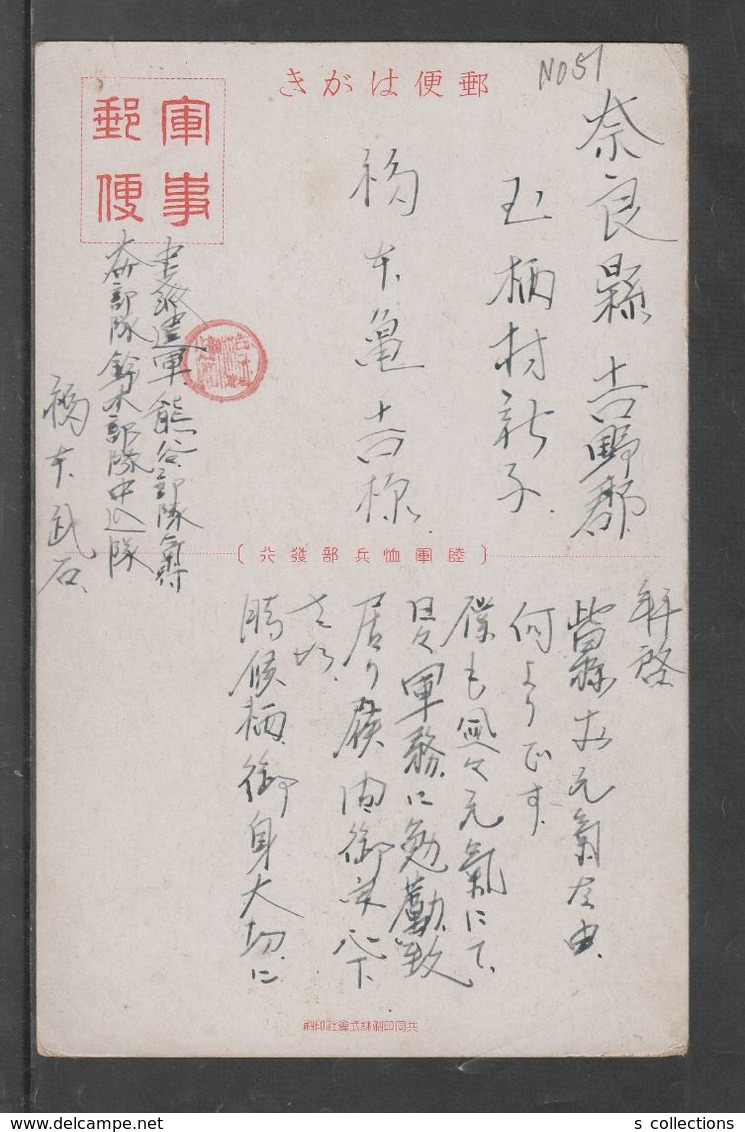 NO 51
郵便はがき
軍事
郵便
奈良縣吉野郡
柄村新子
福本亀吉様
派遣軍熊谷部隊氣付
部隊鈴木部隊中込隊
福本武石
〔陸軍恤兵部發行〕
拝啓
皆様お元氣な由
何よりです
僕も益々元氣にて
日々軍務に勉勵致
居り候間御安心下
さい
時候柄御身大切に
共同印刷株式會社印刷
s collections